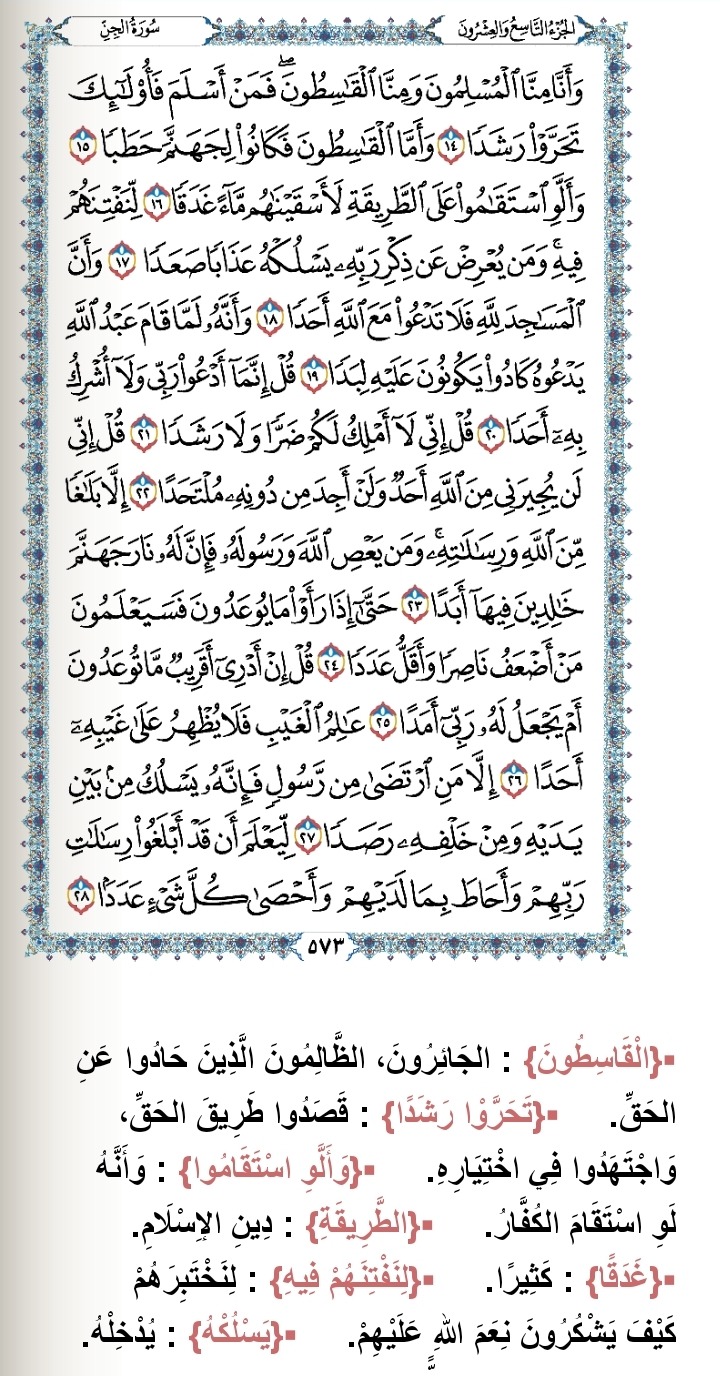 الجُزْءُ التَّاسِعُ وَالعِشْرُونَ
سُورَةُ الجِنِّ
وَأَنَّا مِنَّا ٱلْمُسْلِمُونَ وَمِنَّا ٱلْقَٰسِطُونَۖ فَمَنْ أَسْلَمَ فَأُو۟لَٰٓئِكَ
تَحَرَّوْا۟ رَشَدًا ١٤ وَأَمَّا ٱلْقَٰسِطُونَ فَكَانُوا۟ لِجَهَنَّمَ حَطَبًا ١٥
وَأَلَّوِ ٱسْتَقَٰمُوا۟ عَلَى ٱلطَّرِيقَةِ لَأَسْقَيْنَٰهُم مَّآءً غَدَقًا ١٦ لِّنَفْتِنَهُمْ
فِيهِۚ وَمَن يُعْرِضْ عَن ذِكْرِ رَبِّهِۦ يَسْلُكْهُ عَذَابًا صَعَدًا ١٧ وَأَنَّ
ٱلْمَسَٰجِدَ لِلَّهِ فَلَا تَدْعُوا۟ مَعَ ٱللَّهِ أَحَدًا ١٨ وَأَنَّهُۥ لَمَّا قَامَ عَبْدُ ٱللَّهِ
يَدْعُوهُ كَادُوا۟ يَكُونُونَ عَلَيْهِ لِبَدًا ١٩ قُلْ إِنَّمَآ أَدْعُوا۟ رَبِّى وَلَآ أُشْرِكُ
بِهِۦٓ أَحَدًا ٢٠ قُلْ إِنِّى لَآ أَمْلِكُ لَكُمْ ضَرًّا وَلَا رَشَدًا ٢١ قُلْ إِنِّى
لَن يُجِيرَنِى مِنَ ٱللَّهِ أَحَدٌ وَلَنْ أَجِدَ مِن دُونِهِۦ مُلْتَحَدًا ٢٢ إِلَّا بَلَٰغًا
مِّنَ ٱللَّهِ وَرِسَٰلَٰتِهِۦۚ وَمَن يَعْصِ ٱللَّهَ وَرَسُولَهُۥ فَإِنَّ لَهُۥ نَارَ جَهَنَّمَ
خَٰلِدِينَ فِيهَآ أَبَدًا ٢٣ حَتَّىٰٓ إِذَا رَأَوْا۟ مَا يُوعَدُونَ فَسَيَعْلَمُونَ
مَنْ أَضْعَفُ نَاصِرًا وَأَقَلُّ عَدَدًا ٢٤ قُلْ إِنْ أَدْرِىٓ أَقَرِيبٌ مَّا تُوعَدُونَ
أَمْ يَجْعَلُ لَهُۥ رَبِّىٓ أَمَدًا ٢٥ عَٰلِمُ ٱلْغَيْبِ فَلَا يُظْهِرُ عَلَىٰ غَيْبِهِۦٓ
أَحَدًا ٢٦ إِلَّا مَنِ ٱرْتَضَىٰ مِن رَّسُولٍ فَإِنَّهُۥ يَسْلُكُ مِنۢ بَيْنِ
يَدَيْهِ وَمِنْ خَلْفِهِۦ رَصَدًا ٢٧ لِّيَعْلَمَ أَن قَدْ أَبْلَغُوا۟ رِسَٰلَٰتِ
رَبِّهِمْ وَأَحَاطَ بِمَا لَدَيْهِمْ وَأَحْصَىٰ كُلَّ شَىْءٍ عَدَدًۢا ٢٨
٥٧٣
▪{الْقَاسِطُونَ} : الجَائِرُونَ، الظَّالِمُونَ الَّذِينَ حَادُوا عَنِ
الحَقِّ. ▪{تَحَرَّوْا رَشَدًا} : قَصَدُوا طَرِيقَ الحَقِّ،
وَاجْتَهَدُوا فِي اخْتِيَارِهِ. ▪{وَأَلَّوِ اسْتَقَامُوا} : وَأَنَّهُ
لَوِ اسْتَقَامَ الكُفَّارُ. ▪{الطَّرِيقَةِ} : دِينِ الإِسْلَامِ.
▪{غَدَقًا} : كَثِيرًا. ▪{لِنَفْتِنَهُمْ فِيهِ} : لِنَخْتَبِرَهُمْ
كَيْفَ يَشْكُرُونَ نِعَمَ اللهِ عَلَيْهِمْ. ▪{يَسْلُكْهُ} : يُدْخِلْهُ.